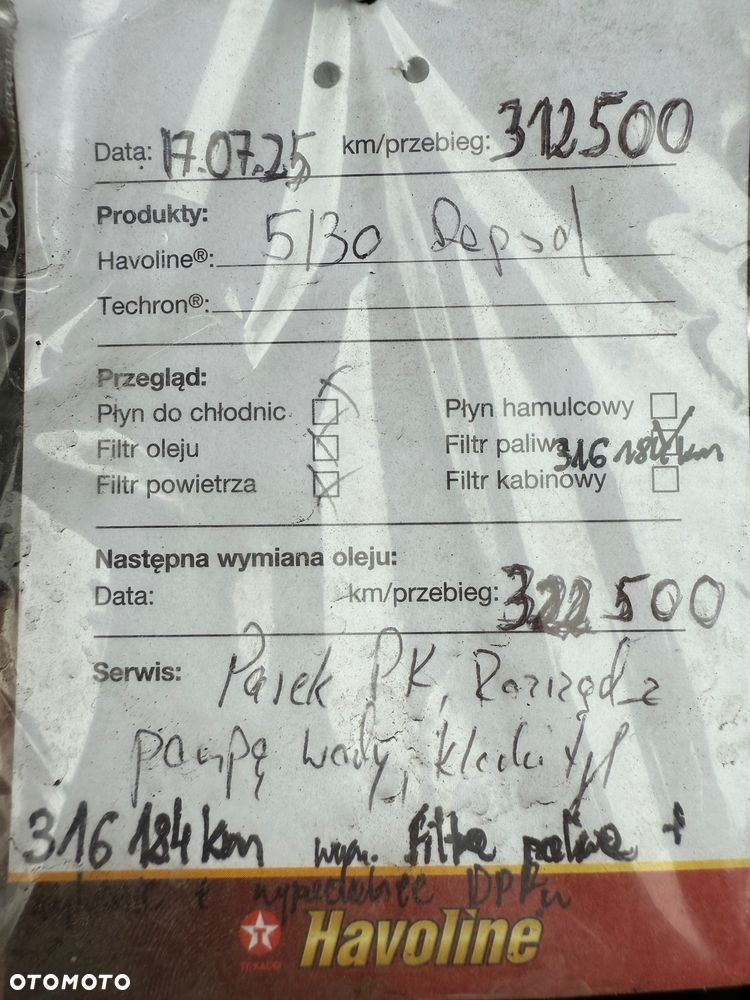 Data: 17.07.25 km/przebieg: 312500
Produkty: 5/30 Repsol
Havoline®:
Techron®:
Przegląd:
Płyn do chłodnic Płyn hamulcowy
Filtr oleju Filtr paliwa 316 184 km
Filtr powietrza Filtr kabinowy
Następna wymiana oleju:
Data: km/przebieg: 322 500
Serwis: Pasek PK, Rozrząd z
pompą wody, klocki tył
316 184 km wym. filtra paliwa +
DPFu
TEXACO Havoline
OTOMOTO